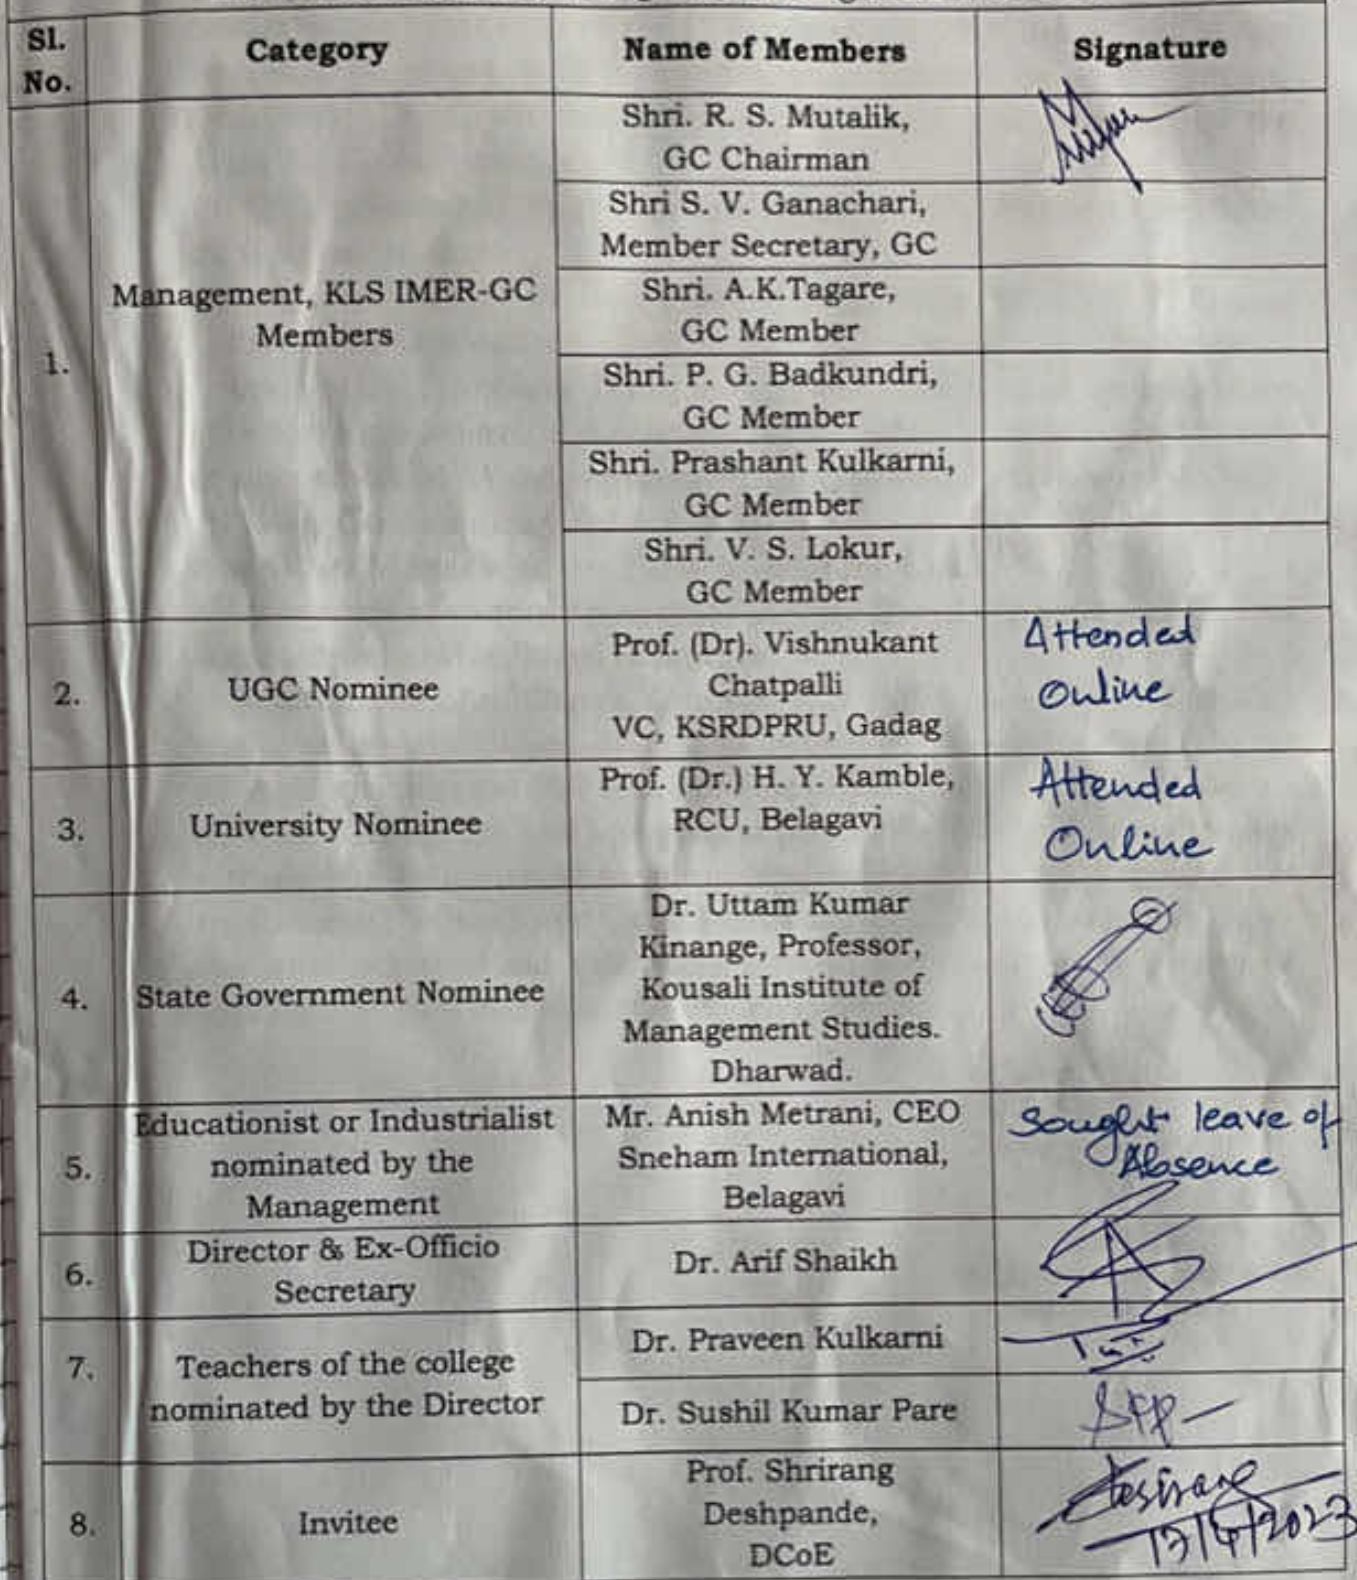 Sl.
No.
Category
Name of Members
Signature
1.
Management, KLS IMER-GC
Members
Shri. R. S. Mutalik,
GC Chairman
Shri S. V. Ganachari,
Member Secretary, GC
Shri. A.K.Tagare,
GC Member
Shri. P. G. Badkundri,
GC Member
Shri. Prashant Kulkarni,
GC Member
Shri. V. S. Lokur,
GC Member
2.
UGC Nominee
Prof. (Dr). Vishnukant
Chatpalli
VC, KSRDPRU, Gadag
Attended
Online
3.
University Nominee
Prof. (Dr.) H. Y. Kamble,
RCU, Belagavi
Attended
Online
4.
State Government Nominee
Dr. Uttam Kumar
Kinange, Professor,
Kousali Institute of
Management Studies.
Dharwad.
5.
Educationist or Industrialist
nominated by the
Management
Mr. Anish Metrani, CEO
Sneham International,
Belagavi
Sought leave of
Absence
6.
Director & Ex-Officio
Secretary
Dr. Arif Shaikh
7.
Teachers of the college
nominated by the Director
Dr. Praveen Kulkarni
Dr. Sushil Kumar Pare
8.
Invitee
Prof. Shrirang
Deshpande,
DCoE